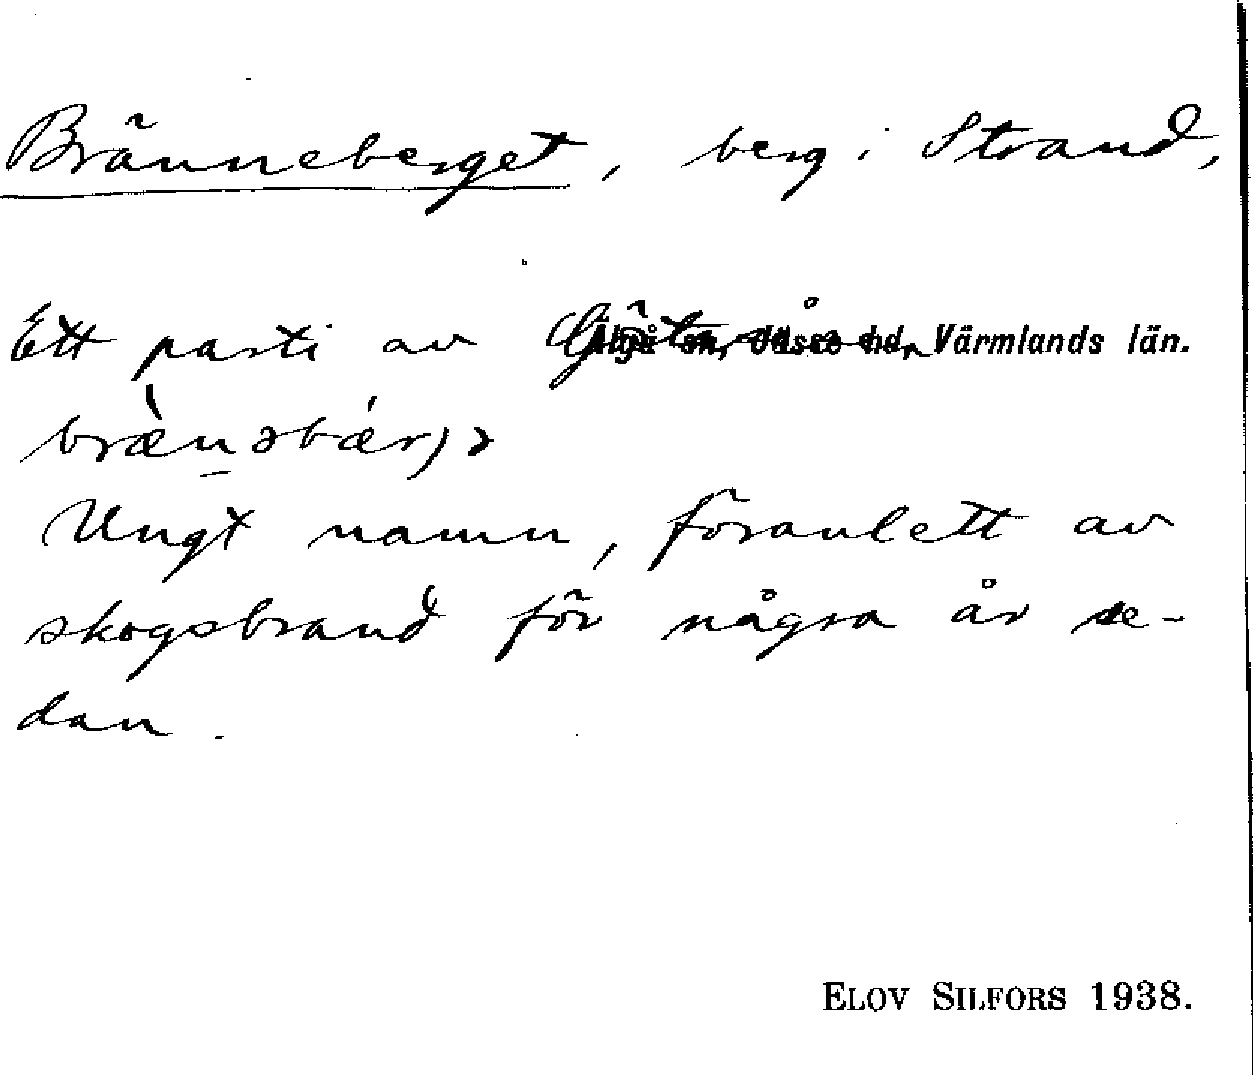 Bränneberget, berg i Strand,
Ett parti av Älgå sn, Jösse hd, Värmlands län.
Ungt namn, föranlett av
skogsbrand för några år se-
dan.
ELOV SILFORS 1938.